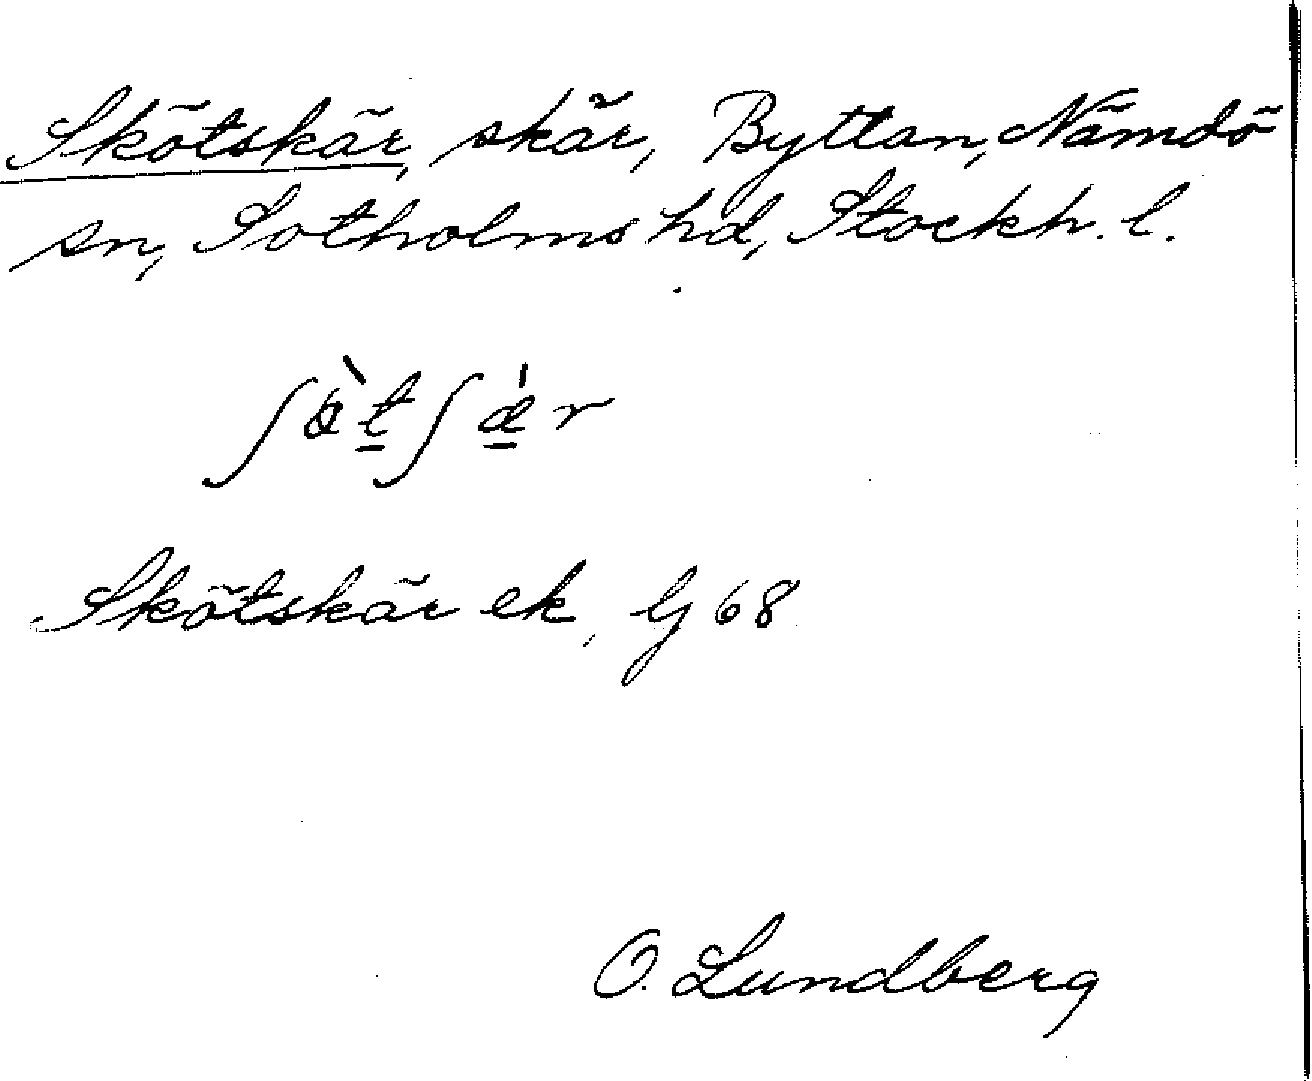 Skötskär, skär, Byttan, Nämdö
sn, Sotholms hd, Stockh. l.
ʃö̀tʃæ̀r
Skötskär ek, bj 68
O. Lundberg